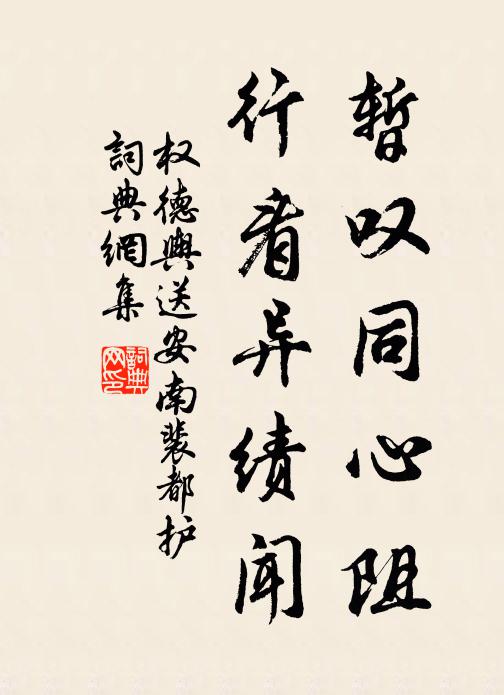 暂叹同心阻
行看异绩闻
权德舆送安南裴都护
词典網集
詞典
网印